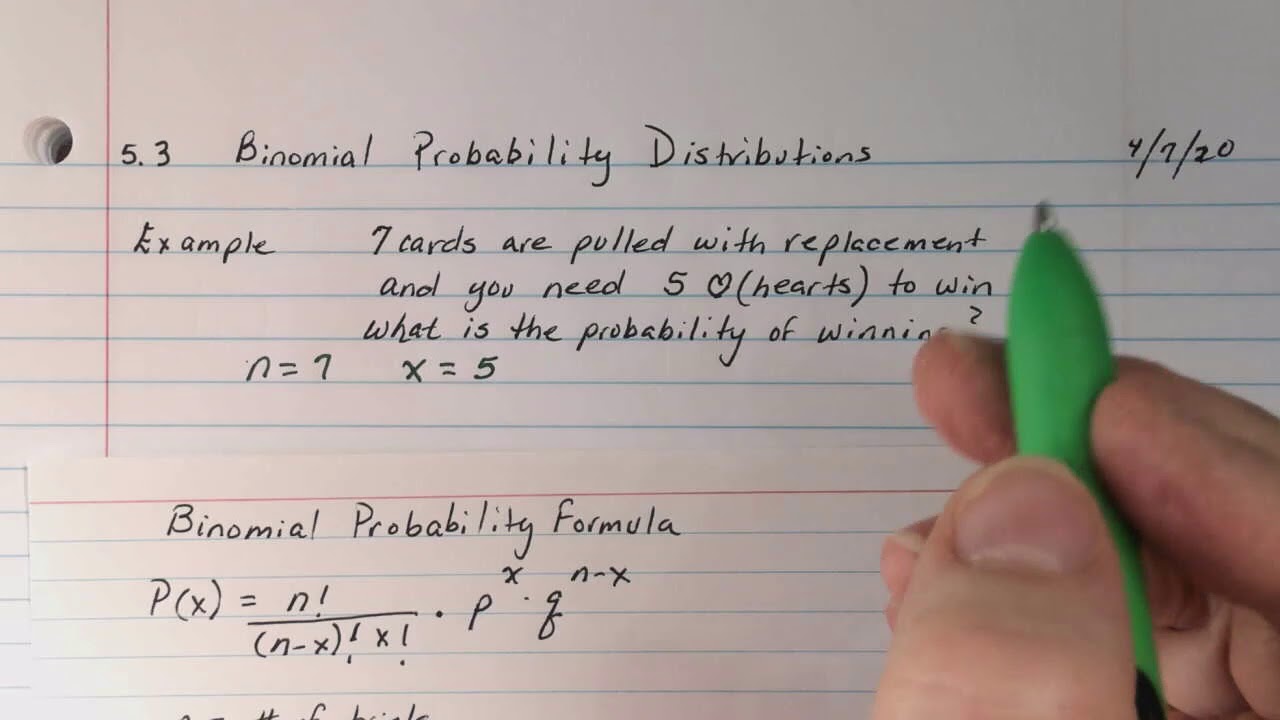 5.3 Binomial Probability Distributions 4/7/20
Example 7 cards are pulled with replacement
and you need 5 ♡(hearts) to win
what is the probability of ?
n = 7 x = 5
Binomial Probability Formula
P(x) = n! / (n-x)! x! · p^x · q^n-x
# of